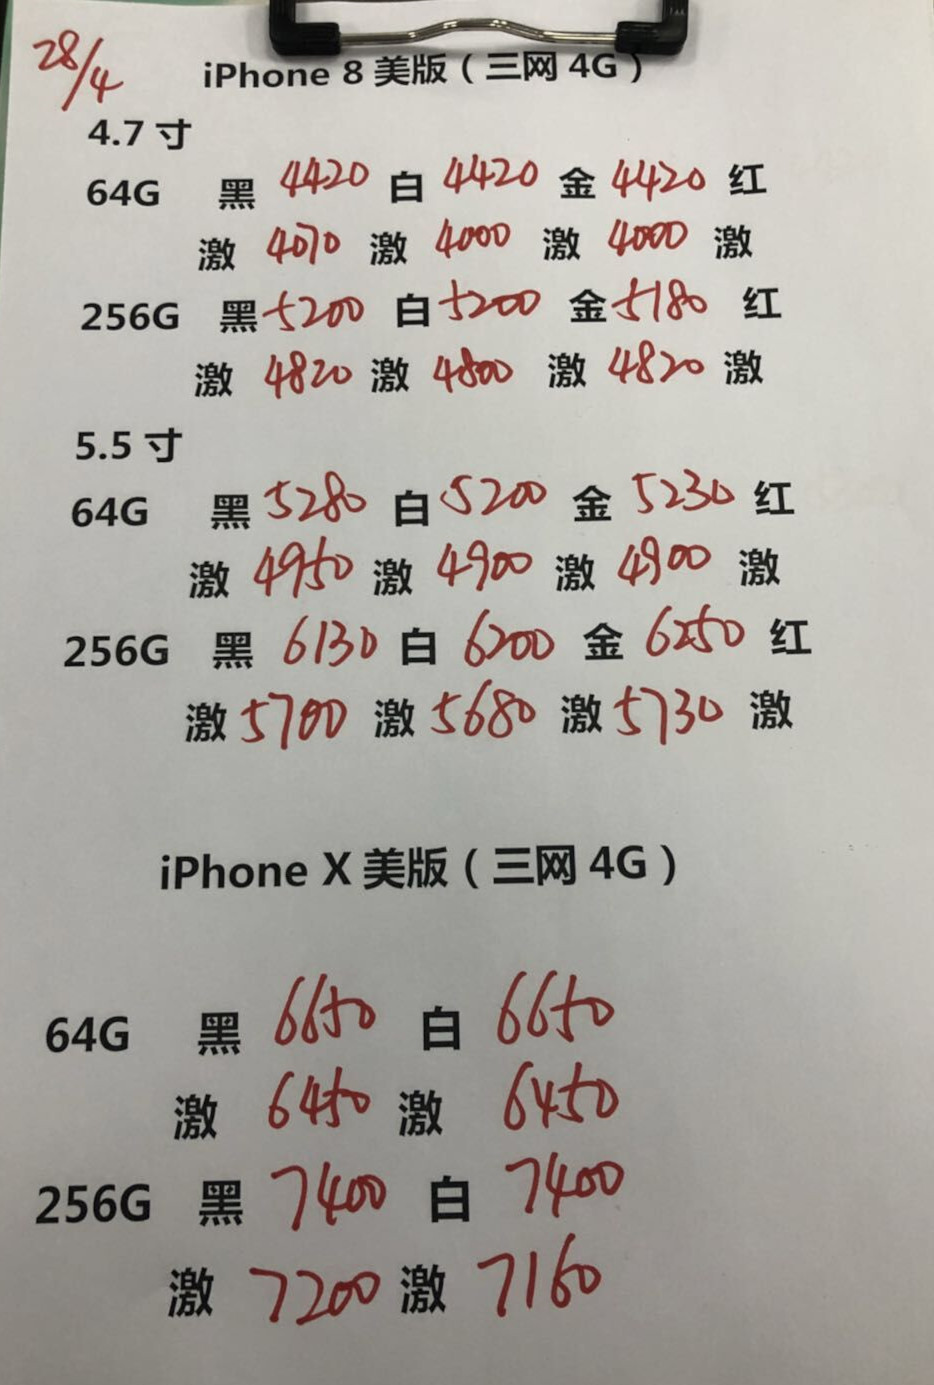 28/4
iPhone 8 美版（三网 4G）
4.7 寸
64G 黑 4420 白 4420 金 4420 红
激 4070 激 4000 激 4000 激
256G 黑 5200 白 5200 金 5180 红
激 4820 激 4800 激 4820 激
5.5 寸
64G 黑 5280 白 5200 金 5230 红
激 4950 激 4900 激 4900 激
256G 黑 6130 白 6200 金 6250 红
激 5700 激 5680 激 5730 激
iPhone X 美版（三网 4G）
64G 黑 6650 白 6650
激 6450 激 6450
256G 黑 7400 白 7400
激 7200 激 7160